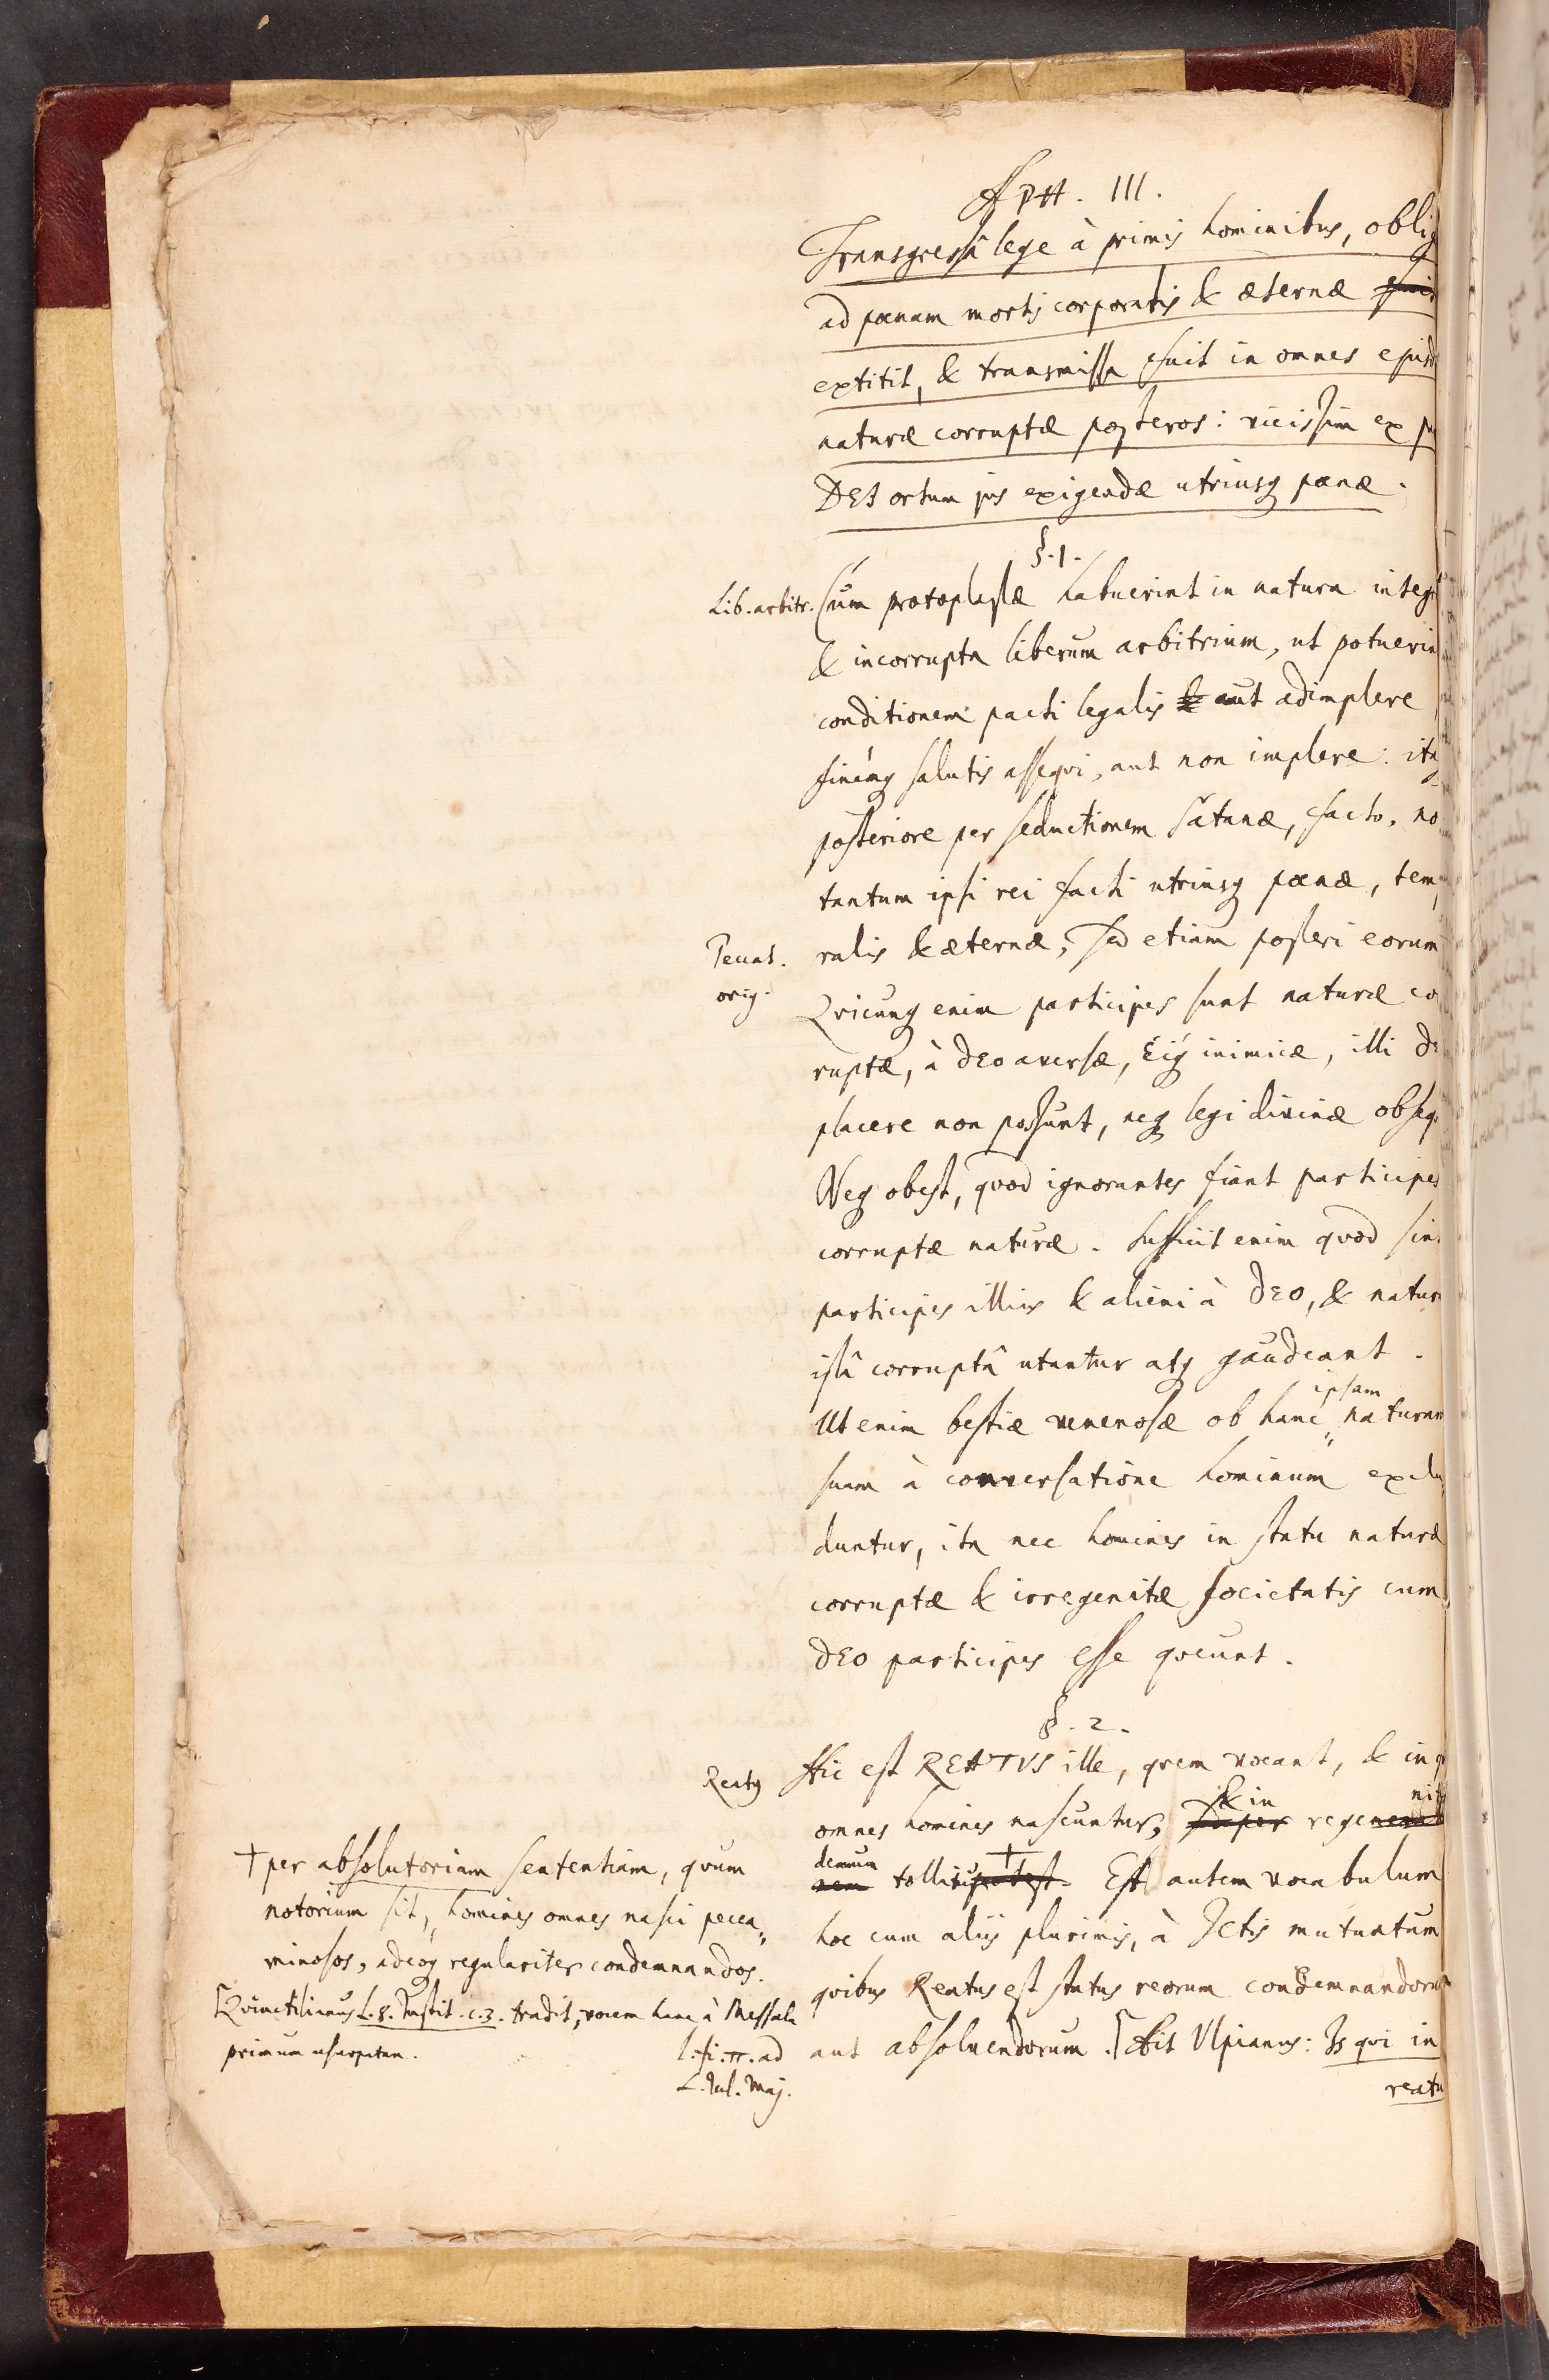 APH. III.
Transgressâ lege à primis hominibus, oblig
ad pœnam mortis corporalis & æternæ
extitit, & transmissa fuit in omnes ejusd
naturæ corruptæ posteros: vicissim ex p
DEI ortum jus exigendæ utriusq pœnæ.
§.1.
Lib. arbitr.
Cum protoplastæ habuerint in natura integr
& incorrupta liberum arbitrium, ut potuerin
conditionem pacti legalis & aut adimplere
finemq salutis assequi, aut non implere: ita
posteriore per seductionem Satanæ, facto, no
tantum ipsi rei facti utriusq pœnæ, tem
Peccat.
orig.
ralis & æternæ, sed etiam posteri eorum
Qvicunq enim participes sunt naturæ co
ruptæ, à DEO aversæ, Eiq inimicæ, illi DE
placere non possunt, neq legi divinæ obseq
Neq obest, qvod ignorantes fiant participes
corruptæ naturæ. Sufficit enim qvod sin
participes illius & alieni à DEO, & natur
istâ corruptâ utantur atq gaudeant.
Ut enim bestiæ venenosæ ob hanc ipsam naturam
suam à conversatione hominum exclu
duntur, ita nec homines in statu naturæ
corruptæ & irregenitæ societatis cum
DEO participes esse qveunt.
§.2.
Reatq
Hic est REATVS ille, qvem vocant, & in q
omnes homines nascuntur, sed per & in regenerat nit
nem demum tollitur potest † Est autem vocabulum
hoc cum aliis plurimis, à JCtis mutuatum
qvibus Reatus est status reorum condemnandorum
aut absolvendorum. ⌈Hit Vlpianus: Is qvi in
reatu
† per absolutoriam sententiam, qvum
notorium sit, homines omnes nasci pecca„
minosos, adeoq regulariter condemnandos.
⌈Qvinctilianus L.8. Instit. c.3. tradit, vocem hanc à Messala
primum usurpatam.
l.fi.π. ad
L. Jul. Maj.